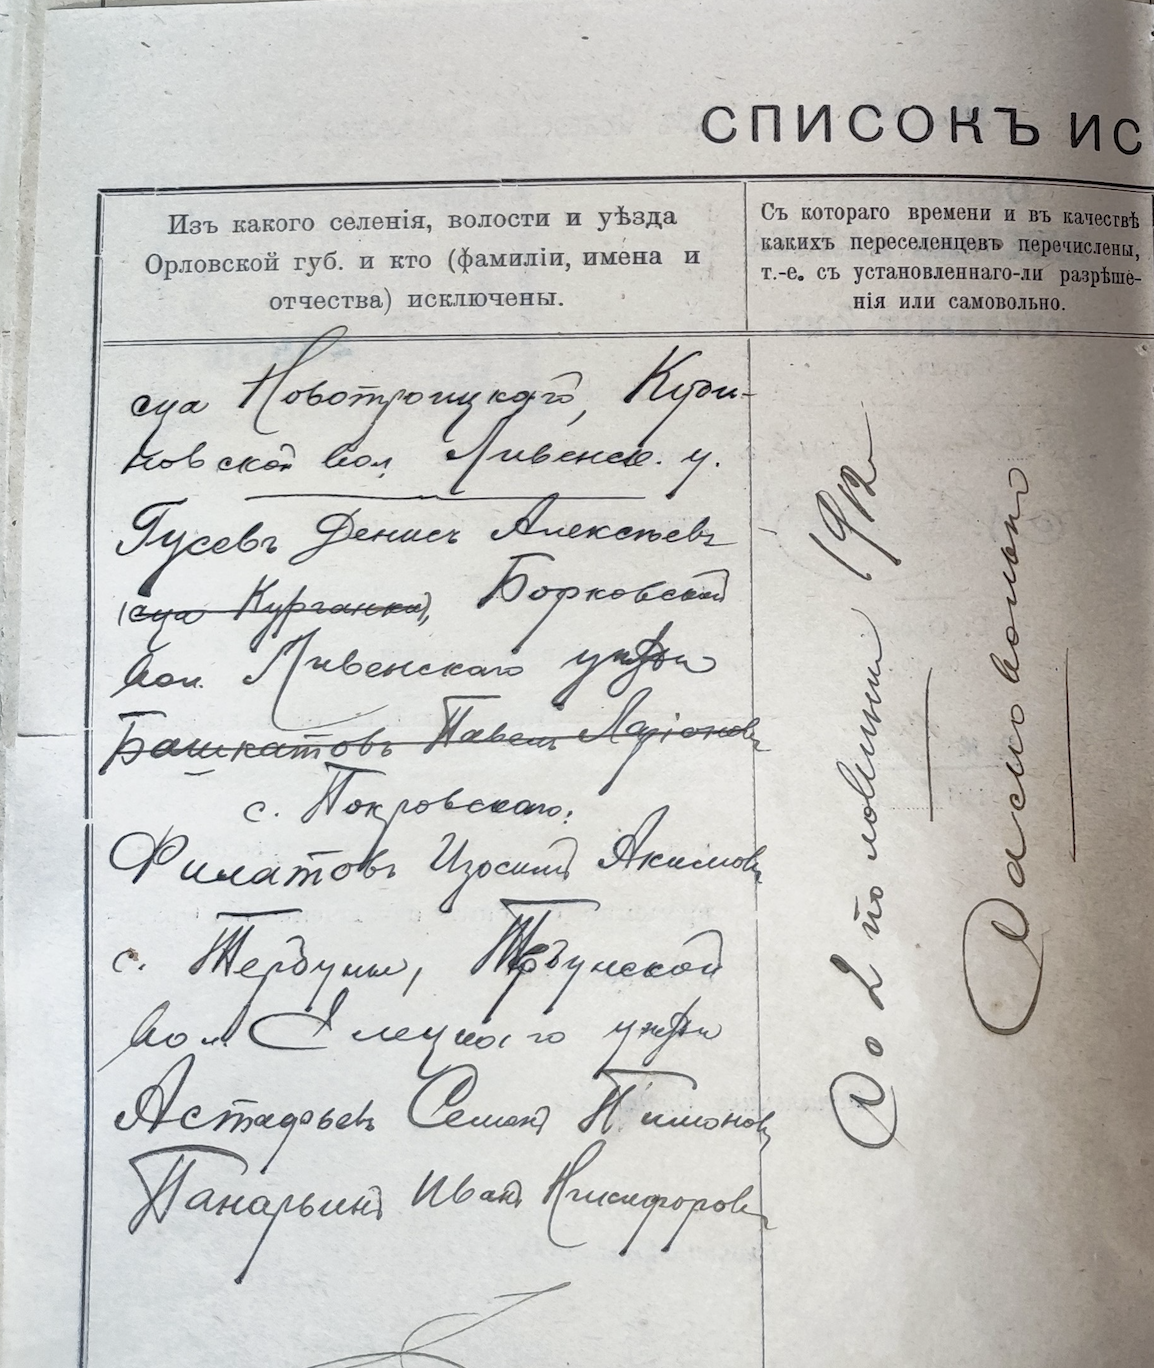 СПИСОКЪ ИС
Изъ какого селенія, волости и уѣзда
Орловской губ. и кто (фамиліи, имена и
отчества) исключены.
Съ котораго времени и въ качествѣ
какихъ переселенцевъ перечислены,
т.-е. съ установленнаго-ли разрѣше-
нія или самовольно.
сца Новотроицкаго, Кри-
новской вол. Ливенск. у.
Гусевъ Денисъ Алексѣевъ
(сца Курганки), Борковской
вол. Ливенскаго уѣзда
Башкатовъ Павелъ Ларіоновъ
с. Покровскаго.
Филатовъ Изосимъ Акимовъ
с. Тербуны, Тербунской
вол. Елецкаго уѣзда
Астафьевъ Семенъ Пимоновъ
Панарьинъ Иванъ Никифоровъ
Со 2ой половины 1912
Самовольно